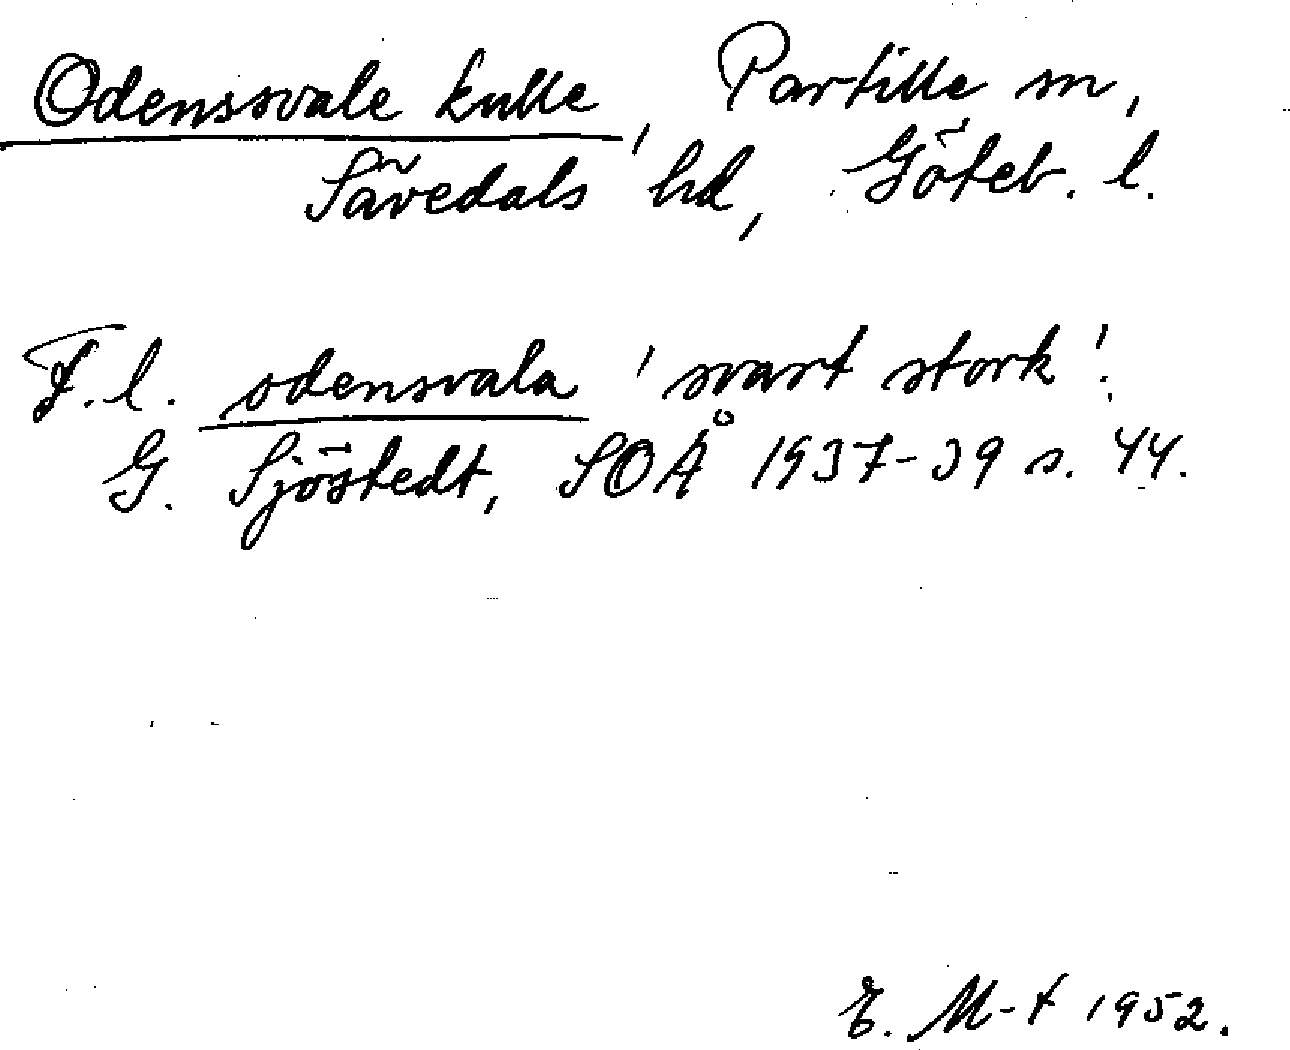 Odenssvale kulle, Partille sn,
Sävedals hd, Göteb. l.
F.l. odensvala 'svart stork'.
G. Sjöstedt, SOÅ 1937-39 s. 44.
E. M-t 1952.